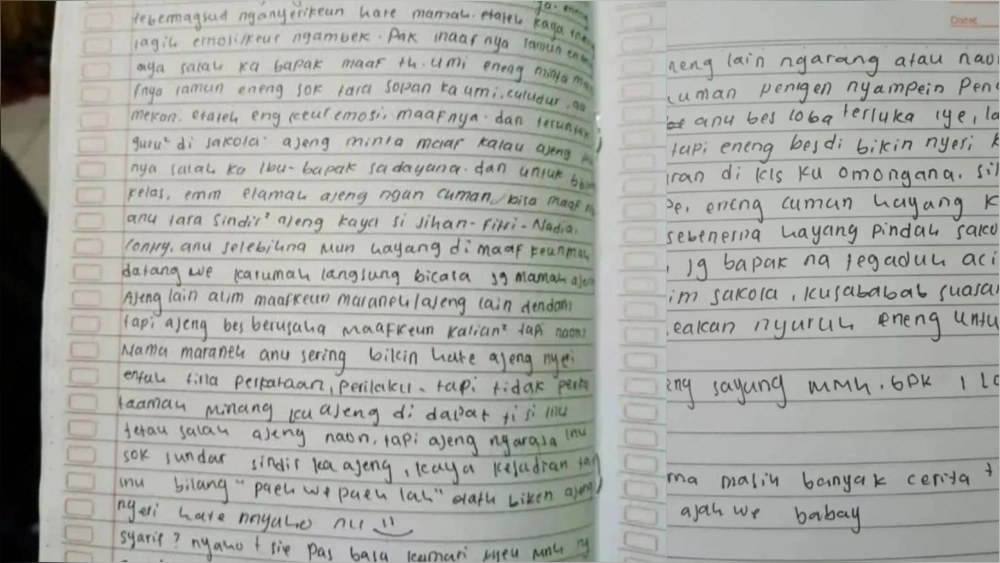 tebermagsud nganyerikeun hate mamah. etateh kaga
lagih emosi/keur ngambek. Pak maaf nya lamun
aya salah ka bapak maaf th. umi eneng minta
nya lamun eneng sok tara sopan ka umi.
mekon. etateh eng keur emosi. maaf nya. dan teruntuk
guru² di sakola. ajeng minta maaf kalau ajeng
nya salah ka Ibu-bapak sadayana. dan untuk
kelas, emm etamah ajeng ngan cuman/bisa maaf
anu tara sindir² ajeng kaya si Jihan-Fitri-Nadia.
anu selebihna mun hayang di maaf keun mah
datang we karumah langsung bicara jg mamah
Ajeng lain alim maafkeun maraneh/ajeng lain dendam
tapi ajeng bes berusaha maafkeun kalian² tapi naon
Nama maraneh anu sering bikin hate ajeng nyeri
entah tina perkataan, perilaku. tapi tidak
taamah minang ku ajeng di dapat ti si
tetau salah ajeng naon, tapi ajeng ngarasa
sok sundar sindir ka ajeng, kaya kejadian
inu bilang "paeh we paeh lah" etath biken ajeng
nyeri hate nnyaho nu
syarif? nyaho t sie pas basa kamari
Date:
neng lain ngarang atau
cuman pengen nyampein
anu bes loba terluka iye,
tapi eneng bes di bikin nyeri
di kls ku omongana.
eneng cuman hayang
sebenerna hayang pindah
jg bapak na tegaduh
sakola, kusababab
eakan nyuruh eneng
sayang mmh. bpk
masih banyak cerita
ajah we babay